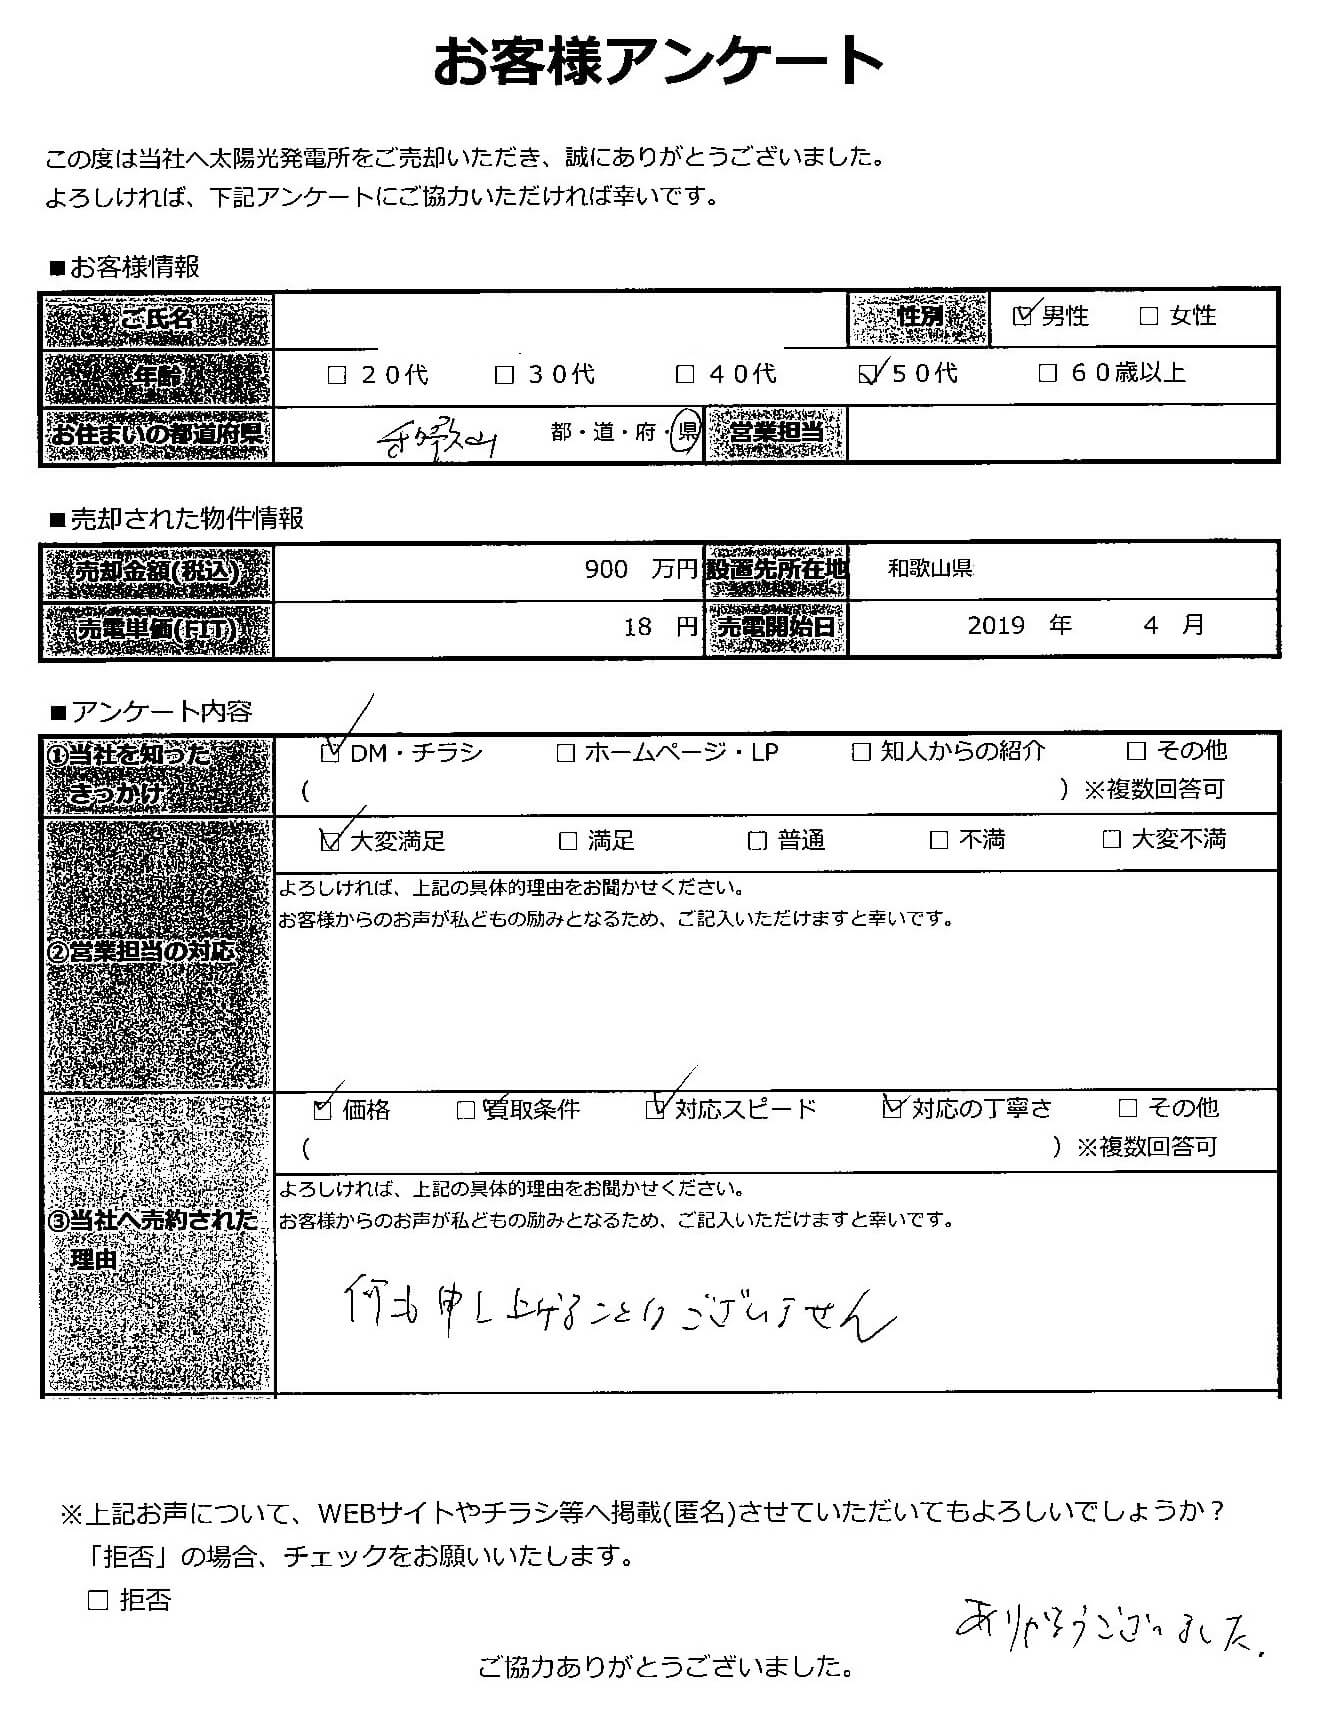 お客様アンケート
この度は当社へ太陽光発電所をご売却いただき、誠にありがとうございました。
よろしければ、下記アンケートにご協力いただければ幸いです。
■お客様情報
ご氏名 性別 ☑男性 □女性
年齢 □20代 □30代 □40代 ☑50代 □60歳以上
お住まいの都道府県 和歌山 都・道・府・県 営業担当
■売却された物件情報
売却金額(税込) 900 万円 設置先所在地 和歌山県
売電単価(FIT) 18 円 売電開始日 2019 年 4 月
■アンケート内容
①当社を知った
きっかけ
☑DM・チラシ □ホームページ・LP □知人からの紹介 □その他
( )※複数回答可
②営業担当の対応
☑大変満足 □満足 □普通 □不満 □大変不満
よろしければ、上記の具体的理由をお聞かせください。
お客様からのお声が私どもの励みとなるため、ご記入いただけますと幸いです。
③当社へ売約された
理由
☑価格 □買取条件 ☑対応スピード ☑対応の丁寧さ □その他
( )※複数回答可
よろしければ、上記の具体的理由をお聞かせください。
お客様からのお声が私どもの励みとなるため、ご記入いただけますと幸いです。
何も申し上げることはございません
※上記お声について、WEBサイトやチラシ等へ掲載(匿名)させていただいてもよろしいでしょうか？
「拒否」の場合、チェックをお願いいたします。
□拒否
ありがとうございました.
ご協力ありがとうございました。